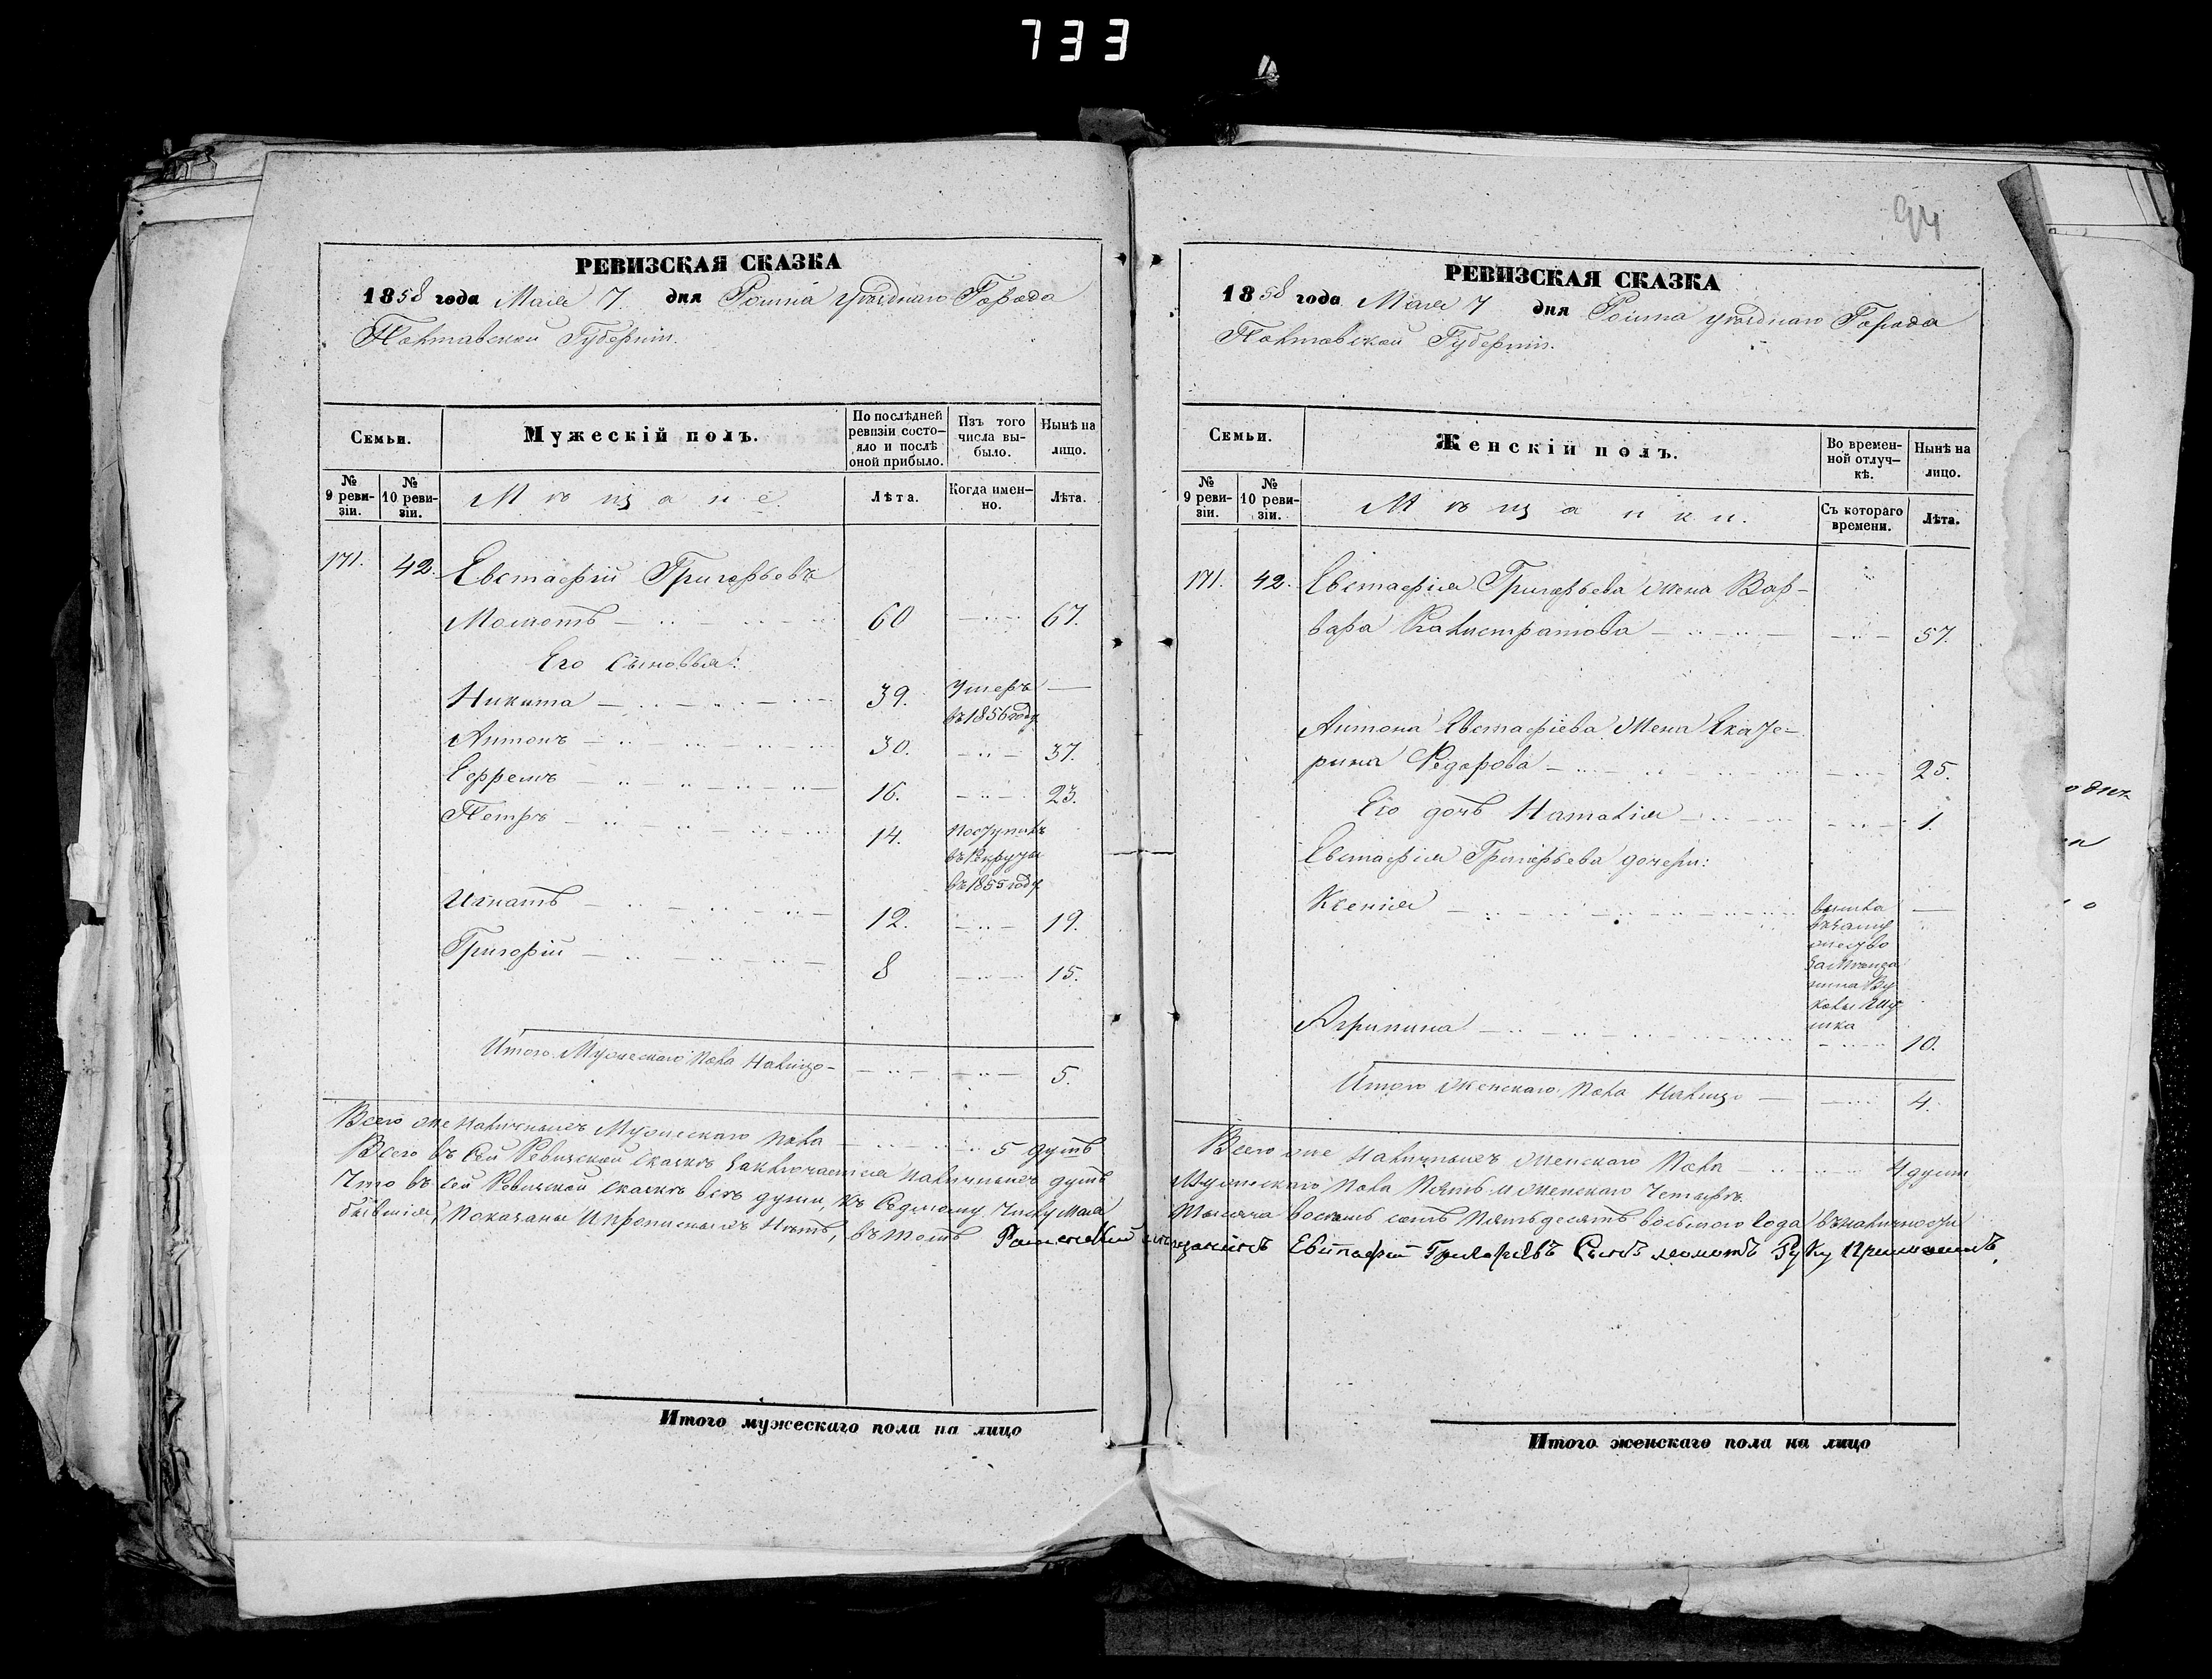 733
РЕВИЗСКАЯ СКАЗКА
1858 года Мая 7 дня Ромна уѣзднаго Города
Полтавской Губерніи.
Семьи.
Мужескій полъ.
По послѣдней ревизіи состояло и послѣ оной прибыло.
Изъ того числа выбыло.
Нынѣ на лицо.
№ 9 ревизіи.
№ 10 ревизіи.
Мѣщане
Лѣта.
Когда именно.
Лѣта.
171. 42. Евстафій Григорьевъ
Момотъ 60 67.
Его Сыновья:
Никита 39. Умеръ въ 1856 году —
Антонъ 30. 37.
Ефремъ 16. 23.
Петръ 14. Поступилъ
въ Рекруты
въ 1855 году
Игнатъ 12. 19.
Григорій 8 15.
Итого Мужескаго Пола Налицо 5.
Всего же Наличныхъ Мужескаго Пола 5 душъ
Всего въ Сей Ревизской Сказкѣ Заключается Наличныхъ душъ
Что въ сей Ревизской Сказкѣ всѣ души, къ Седьмому Числу Мая
бывшія, Показаны И прописныхъ Нѣтъ, въ томъ Роменский мѣ
Итого мужескаго пола на лицо
94
РЕВИЗСКАЯ СКАЗКА
1858 года Мая 7 дня Ромна уѣзднаго Города
Полтавской Губерніи.
Семьи.
Женскій полъ.
Во временной отлучкѣ.
Нынѣ на лицо.
№ 9 ревизіи.
№ 10 ревизіи.
Мѣщанки.
Съ котораго времени.
Лѣта.
171. 42. Евстафія Григорьева жена Вар-
вара Калистратова 57.
Антона Евстафіева Жена Екате-
рина Федорова 25.
Его дочь Наталія 1.
Евстафія Григорьева дочери:
Ксенія вышла —
въ заму
жество
за Мѣща
нина
Агрипина 10.
Итого Женскаго Пола Налицо 4.
Всего же Наличныхъ Женскаго Пола 4 души
Мужескаго Пола Пять и Женскаго Четыре
Тысяча восемь сотъ Пятьдесятъ восьмого Года въ наличности
щанинъ Евстафий Григориевъ Сынъ момотъ Руку Приложилъ.
Итого женскаго пола на лицо